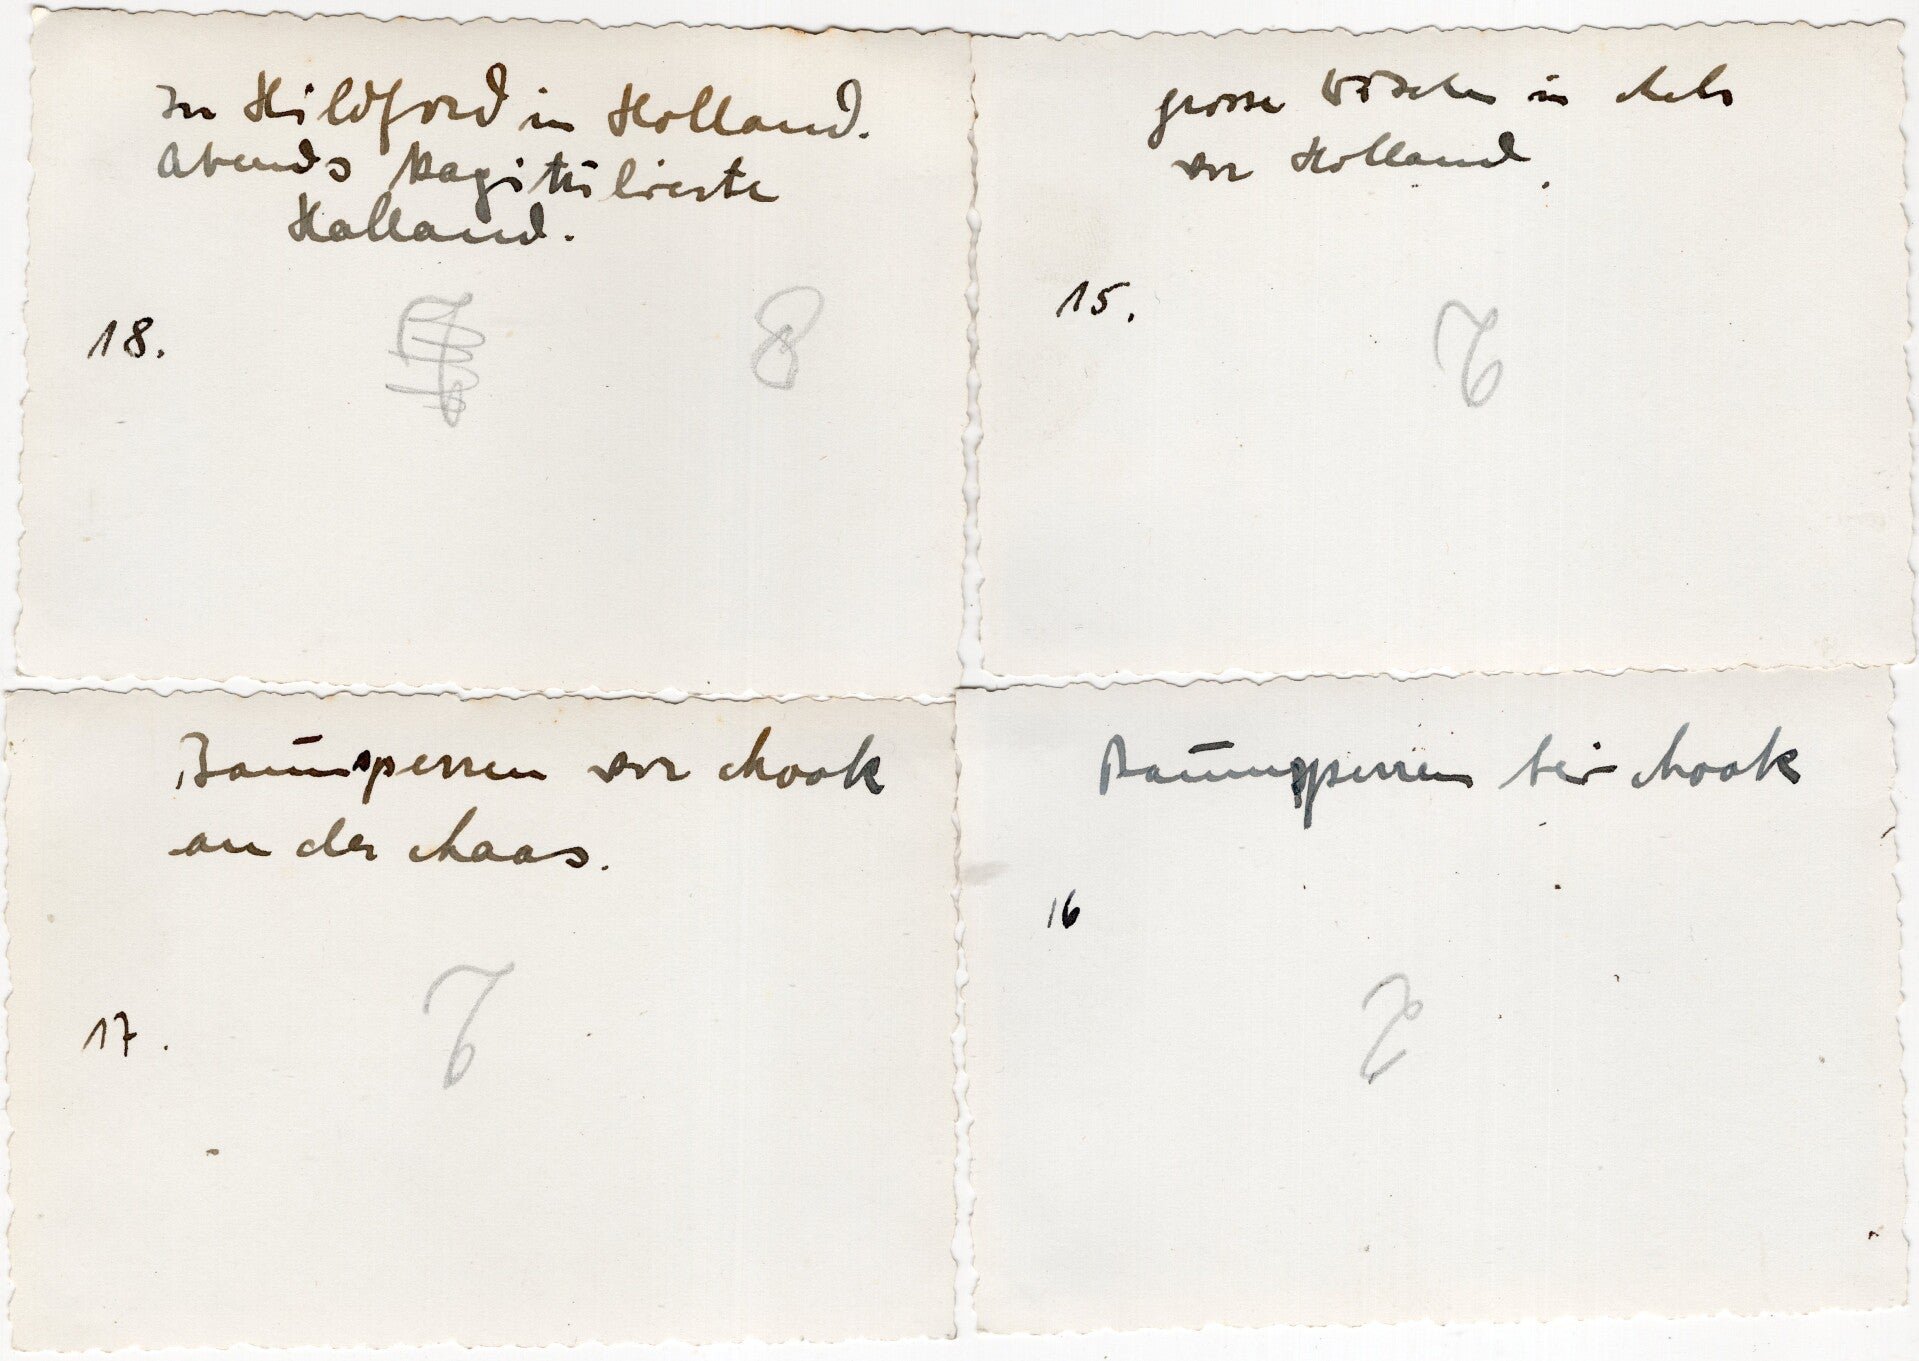 In Hildford in Holland.
Abends kapitulierte
Holland.
18.
8
grosse Wäsche in
vor Holland.
15.
7
Baumsperren vor Mook
an der Maas.
17.
7
Baumsperren bei Mook
16
7